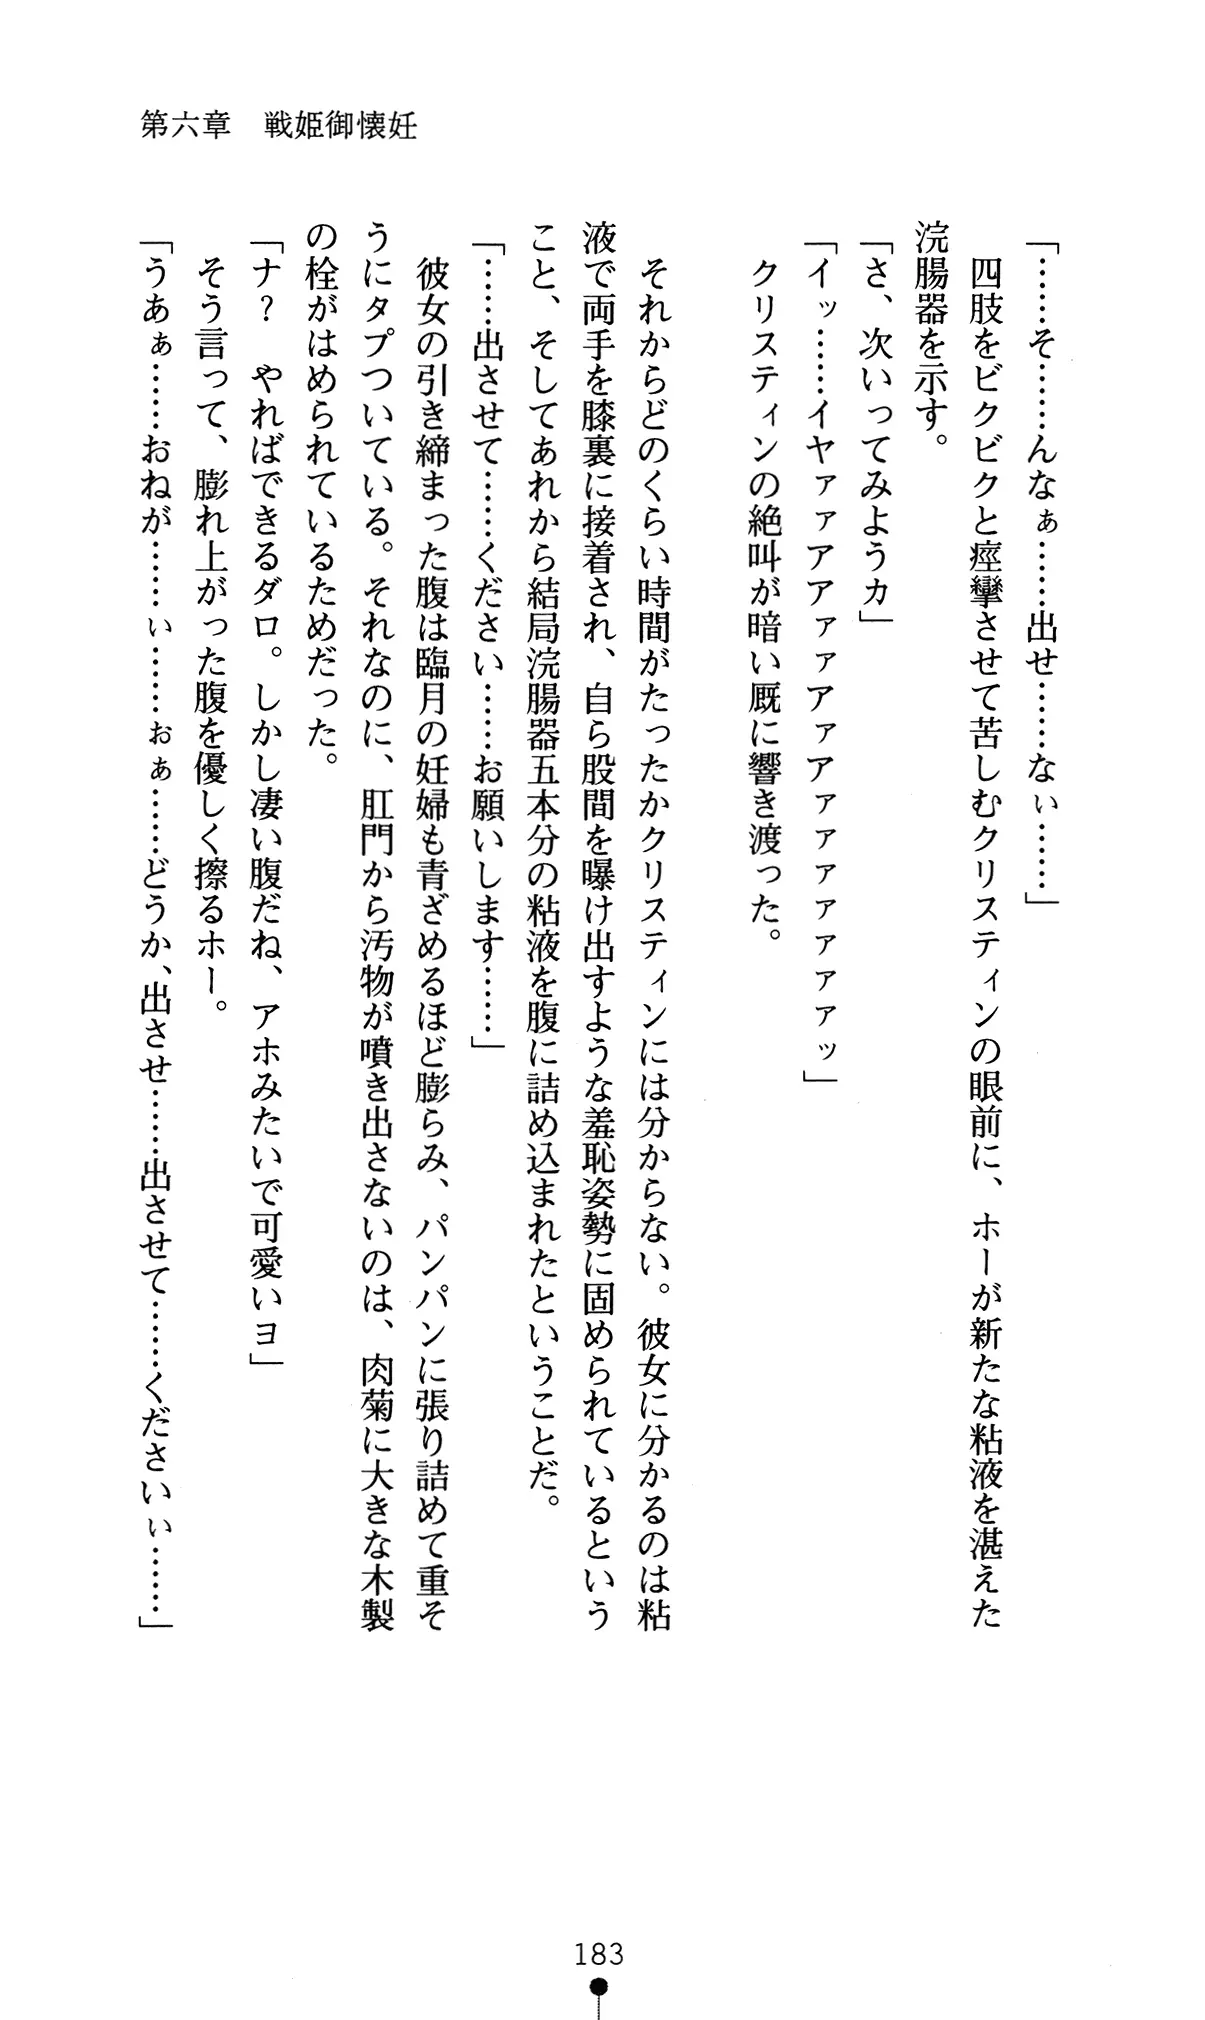 第六章　戦姫御懐妊
「……そ……んなぁ……出せ……なぃ……」
　四肢をビクビクと痙攣させて苦しむクリスティンの眼前に、ホーが新たな粘液を湛えた
浣腸器を示す。
「さ、次いってみようカ」
「イッ……イヤァァアアァァアァアァァァァァァァッ」
　クリスティンの絶叫が暗い厩に響き渡った。
　それからどのくらい時間がたったかクリスティンには分からない。彼女に分かるのは粘
液で両手を膝裏に接着され、自ら股間を曝け出すような羞恥姿勢に固められているという
こと、そしてあれから結局浣腸器五本分の粘液を腹に詰め込まれたということだ。
「……出させて……ください……お願いします……」
　彼女の引き締まった腹は臨月の妊婦も青ざめるほど膨らみ、パンパンに張り詰めて重そ
うにタプついている。それなのに、肛門から汚物が噴き出さないのは、肉菊に大きな木製
の栓がはめられているためだった。
「ナ？　やればできるダロ。しかし凄い腹だね、アホみたいで可愛いヨ」
　そう言って、膨れ上がった腹を優しく擦るホー。
「うあぁ……おねが……ぃ……ぉぁ……どうか、出させ……出させて……くださいぃ……」
183